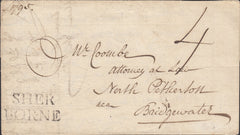 1795
4
Mr Coombe
Attorney at Law
North Petherton
near
Bridgewater
SHER
BORNE